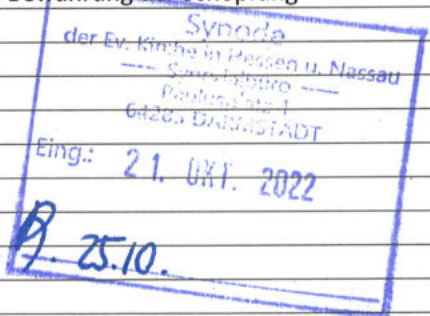 Bewahrung der Schöpfung
Synode
der Ev. Kirche in Hessen u. Nassau
— Synodalbüro —
Paulusplatz 1
64285 DARMSTADT
Eing.: 21. OKT. 2022
25.10.